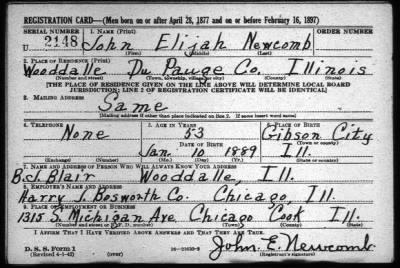 REGISTRATION CARD—(Men born on or after April 28, 1877 and on or before February 16, 1897)
SERIAL NUMBER 1. NAME (Print) ORDER NUMBER
U 2148 John Elijah Newcomb
(First) (Middle) (Last)
2. PLACE OF RESIDENCE (Print)
Wooddalle Du Pauge Co. Illinois
(Number and street) (Town, township, village, or city) (County) (State)
[THE PLACE OF RESIDENCE GIVEN ON THE LINE ABOVE WILL DETERMINE LOCAL BOARD
JURISDICTION; LINE 2 OF REGISTRATION CERTIFICATE WILL BE IDENTICAL]
3. MAILING ADDRESS
Same
[Mailing address if other than place indicated on line 2. If same insert word same]
4. TELEPHONE 5. AGE IN YEARS 6. PLACE OF BIRTH
None 53 Gibson City
DATE OF BIRTH (Town or county)
Jan. 10 1889 Ill.
(Exchange) (Number) (Mo.) (Day) (Yr.) (State or country)
7. NAME AND ADDRESS OF PERSON WHO WILL ALWAYS KNOW YOUR ADDRESS
B.J. Blair Wooddalle, Ill.
8. EMPLOYER'S NAME AND ADDRESS
Harry Bosworth Co. Chicago, Ill.
9. PLACE OF EMPLOYMENT OR BUSINESS
1315 S. Michigan Ave Chicago Cook Ill.
(Number and street or R. F. D. number) (Town) (County) (State)
I AFFIRM THAT I HAVE VERIFIED ABOVE ANSWERS AND THAT THEY ARE TRUE.
D. S. S. Form 1
(Revised 4-1-42) (over) John. E. Newcomb